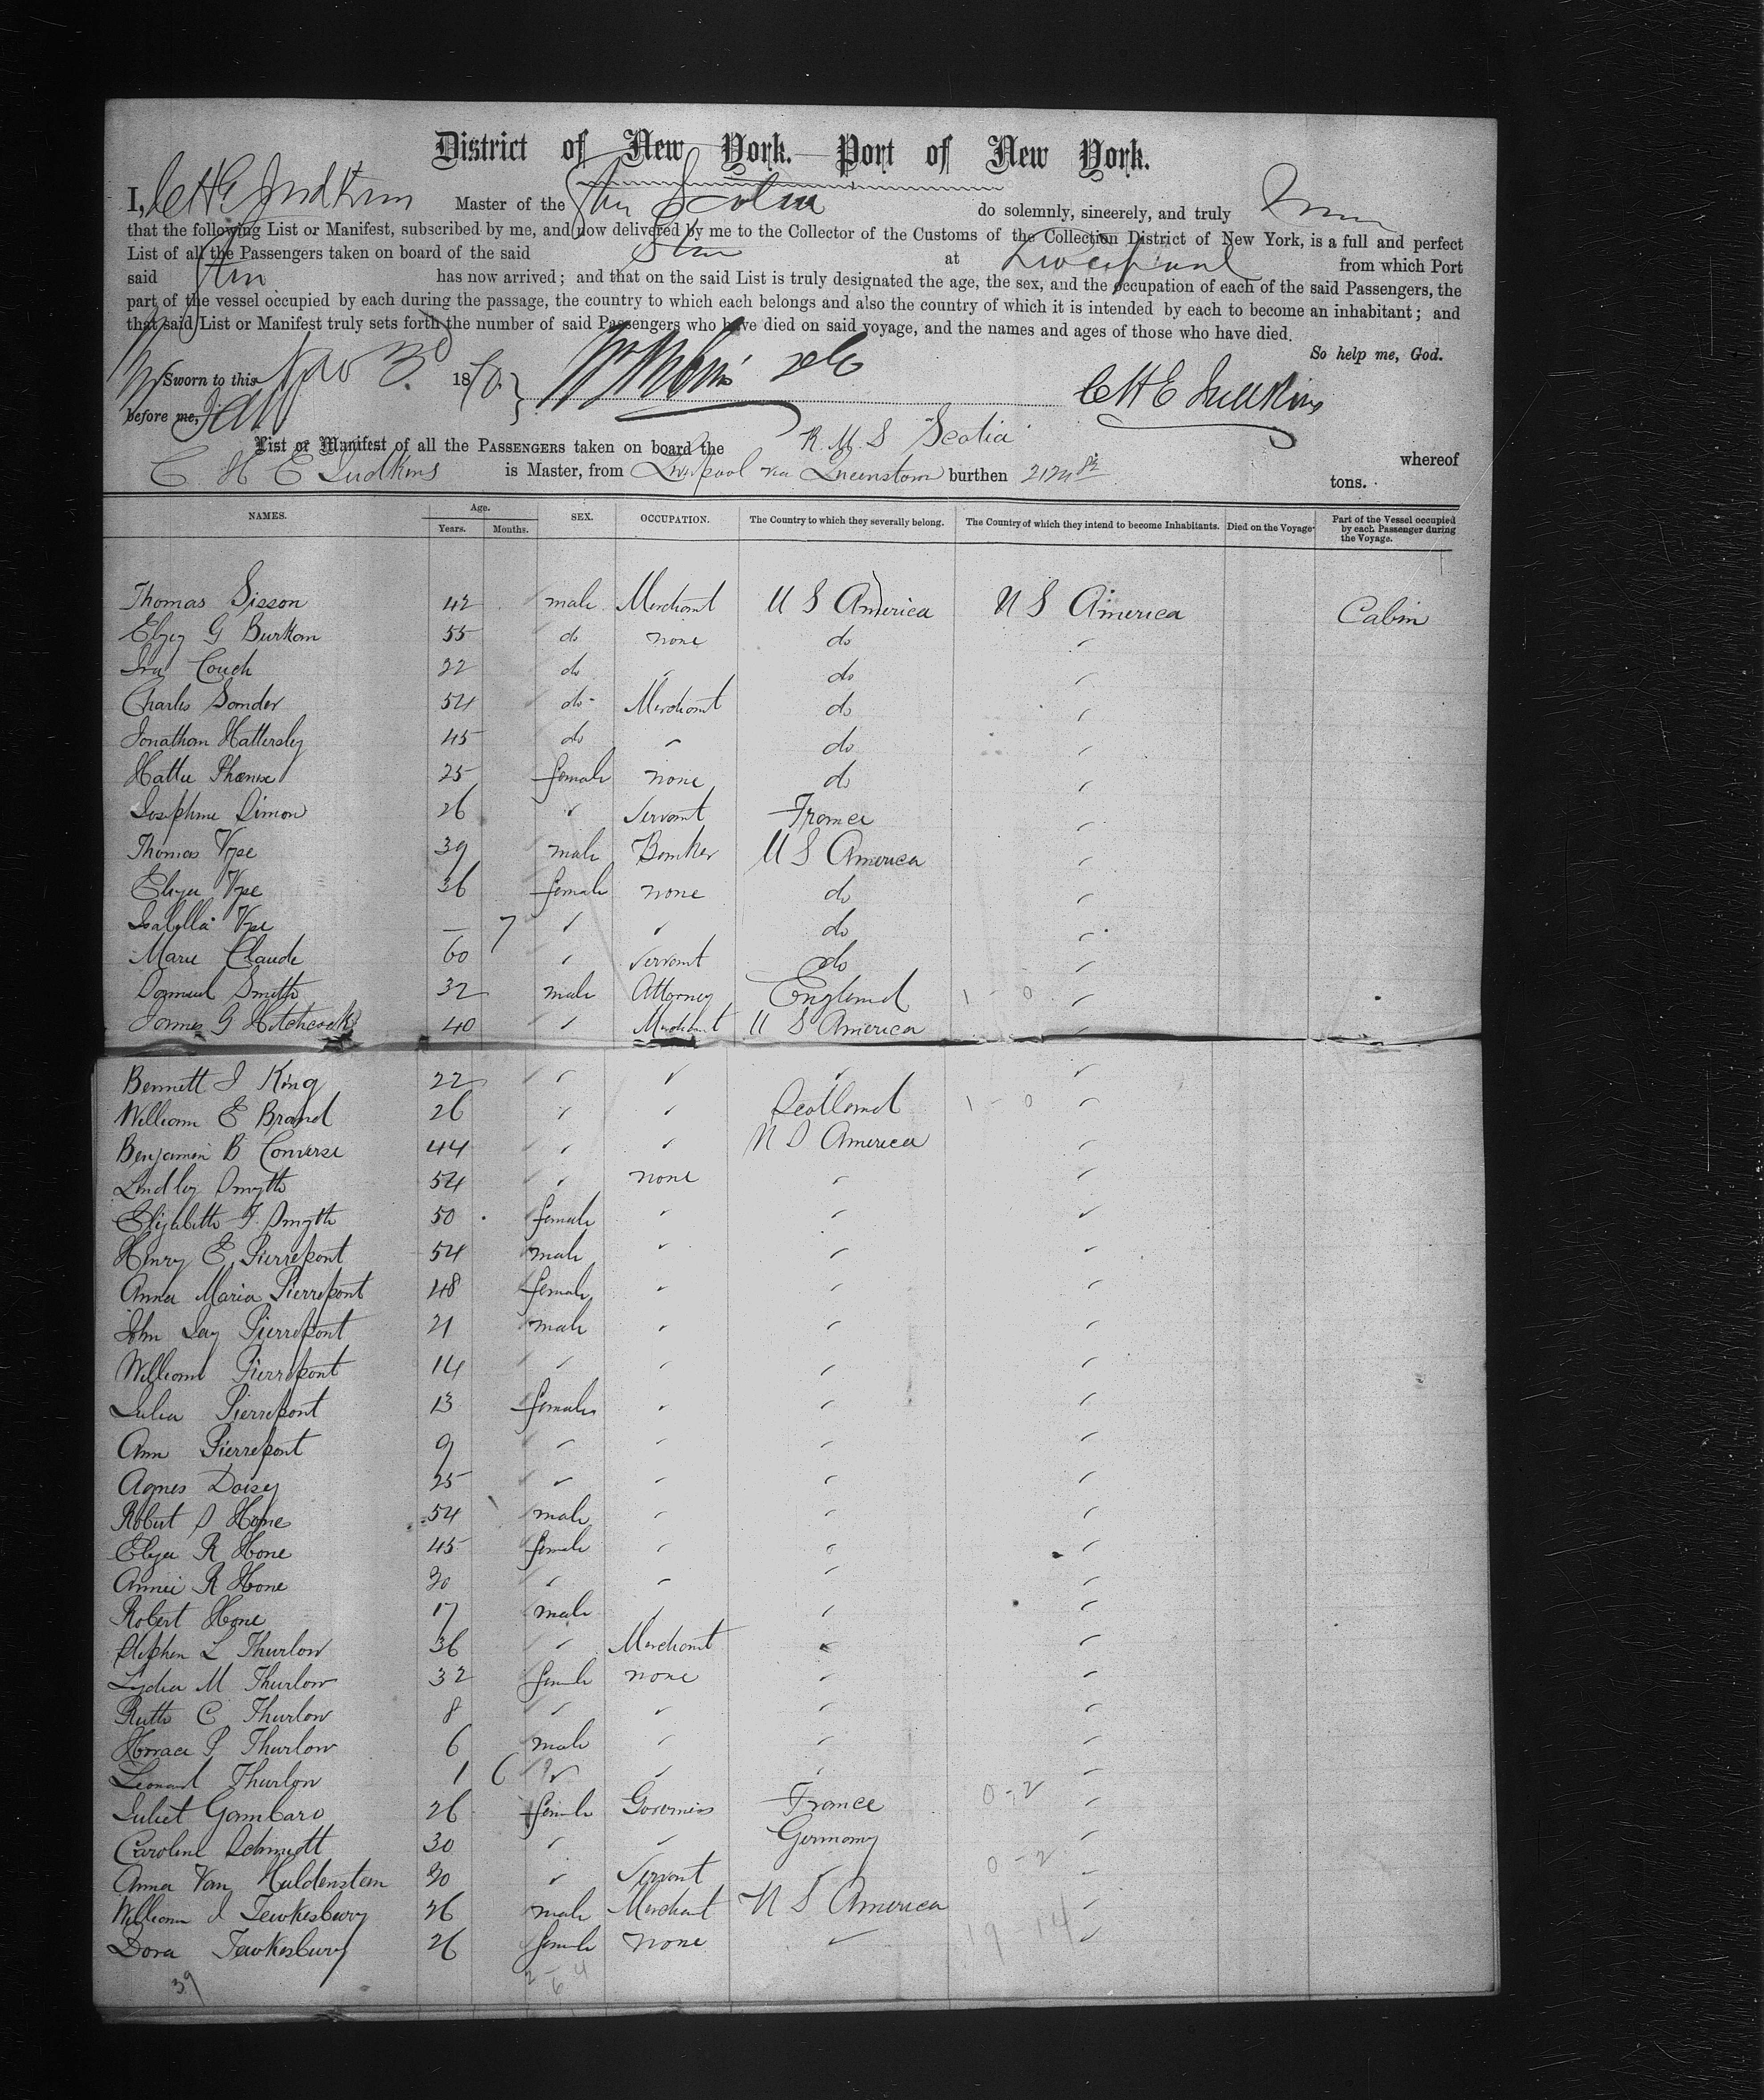 District of New York. Port of New York.
I, C H E Judkins Master of the Str Scotia do solemnly, sincerely, and truly
that the following List or Manifest, subscribed by me, and now delivered by me to the Collector of the Customs of the Collection District of New York, is a full and perfect
List of all the Passengers taken on board of the said Str at Liverpool from which Port
said Str has now arrived; and that on the said List is truly designated the age, the sex, and the occupation of each of the said Passengers, the
part of the vessel occupied by each during the passage, the country to which each belongs and also the country of which it is intended by each to become an inhabitant; and
that said List or Manifest truly sets forth the number of said Passengers who have died on said voyage, and the names and ages of those who have died.
So help me, God.
Sworn to this Nov 3d 1870. C H E Judkins
before me,
List or Manifest of all the PASSENGERS taken on board the R. M. S Scotia whereof
C H E Judkins is Master, from Liverpool via Queenstown burthen tons.
NAMES. Age. Years. Months. SEX. OCCUPATION. The Country to which they severally belong. The Country of which they intend to become Inhabitants. Died on the Voyage Part of the Vessel occupied by each Passenger during the Voyage.
Thomas Sisson 42 male Merchant U S America U S America Cabin
G 55 do none do "
Ira Couch 22 do " do "
Charles Sonder 54 do Merchant do "
Jonathan Hattersley 45 do " do "
Hattie Phenix 25 female none do "
Josephine Simon 26 " Servant France "
Thomas Vyse 39 male Banker U S America "
Eliza Vyse 36 female none do "
Isabella Vyse — 7 " " do "
Marie Claude 60 " Servant do "
Samuel Smith 32 male Attorney England 1 - 0 "
James G Hitchcock 40 " Merchant U S America "
Bennett J King 22 " " " "
William E Brand 26 " " Scotland 1 - 0 "
Benjamin B Converse 44 " " U S America "
Lindley Smyth 54 " none " "
Elizabeth F Smyth 50 female " " "
Henry E. Pierrepont 54 male " " "
Anna Maria Pierrepont 48 female " " "
John Jay Pierrepont 21 male " " "
William Pierrepont 14 " " " "
Julia Pierrepont 13 female " " "
Ann Pierrepont 9 " " " "
Agnes Daisey 25 " " " "
Robert S Hone 54 male " " "
Eliza R Hone 45 female " " "
Annie R Hone 20 " " " "
Robert Hone 17 male " " "
Stephen L Thurlow 36 " Merchant " "
Lydia M Thurlow 32 female none " "
Ruth C Thurlow 8 " " " "
Horace P Thurlow 6 male " " "
Leonard Thurlow 1 6 " " " "
Juliet Gambaro 26 female Governess France 0 - 2 "
Caroline Schmidt 30 " " Germany "
Anna Van Huldenstein 30 " Servant " 0 - 2 "
William J Tewkesbury 26 male Merchant U S America "
Dora Tewkesbury 26 female none " "
39 19 14